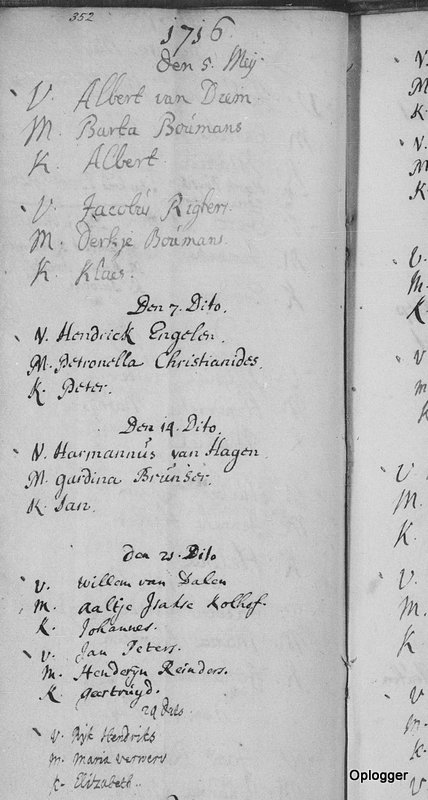 352
1716.
den 5. Meij.
V. Albert van Drem
M. Barta Boúmans
K. Albert
V. Jacobús Rigters.
M. Derkje Boúmans.
K. Klaes.
Den 7. Dito.
V. Hendrick Engelen.
M. Petronella Christianides.
K. Peter.
Den 14. Dito.
V. Harmannús van Hagen.
M. gardina Brúnser.
K. Jan.
den 21. Dito
V. Willem van Dalen
M. Aaltje Isakse Kolhof.
K. Johannes.
V. Jan Peters.
M. Henderijn Reinders.
K. geertruyd.
29 Dito
V. Rijk Hendriks
M. Maria verwers
K. Elizabeth.
V.
M.
K.
V.
M.
K.
V.
M.
K.
V
M
K
V
M.
K.
V.
M.
K
V
M.
K.
V
Oplogger